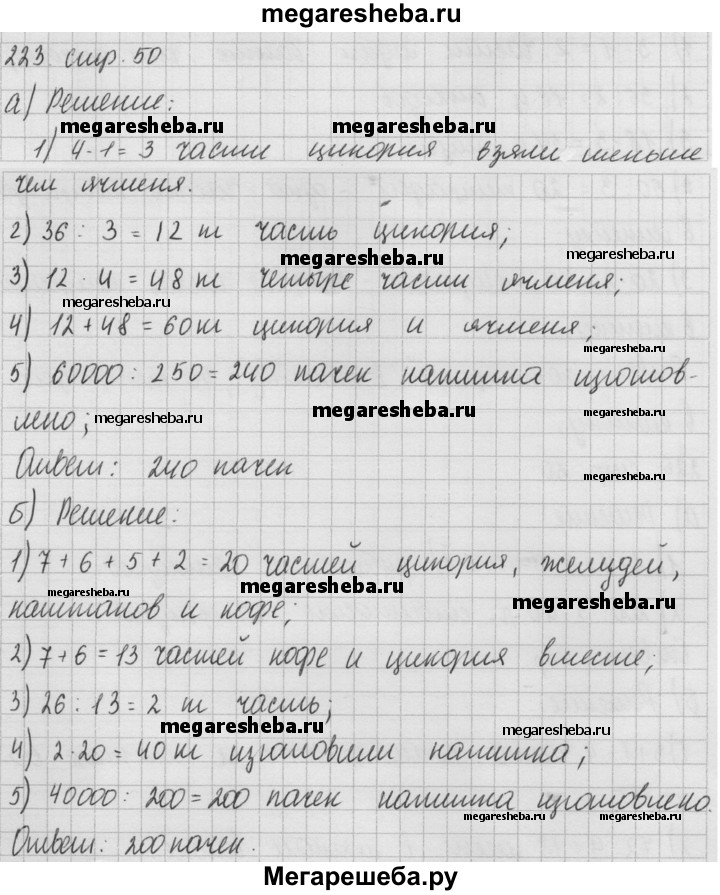 megaresheba.ru
223 стр. 50
а) Решение:
megaresheba.ru megaresheba.ru
1) 4-1=3 части цикория взяли меньше
чем ячменя.
2) 36 : 3 = 12 т часть цикория;
megaresheba.ru megaresheba.ru
3) 12 · 4 = 48 т четыре части ячменя;
megaresheba.ru
4) 12+48 = 60 т цикория и ячменя;
megaresheba.ru
5) 60000 : 250 = 240 пачек напитка изготов-
лено;
megaresheba.ru megaresheba.ru megaresheba.ru
Ответ: 240 пачек
megaresheba.ru
б) Решение:
1) 7 + 6 + 5 + 2 = 20 частей цикория, желудей,
megaresheba.ru megaresheba.ru megaresheba.ru
каштанов и кофе;
2) 7+6 = 13 частей кофе и цикория вместе;
3) 26 : 13 = 2 т часть;
megaresheba.ru megaresheba.ru
4) 2·20 = 40 т изготовили напитка;
5) 40000 : 200 = 200 пачек напитка изготовлено.
megaresheba.ru megaresheba.ru
Ответ: 200 пачек.
Мегарешеба.ру